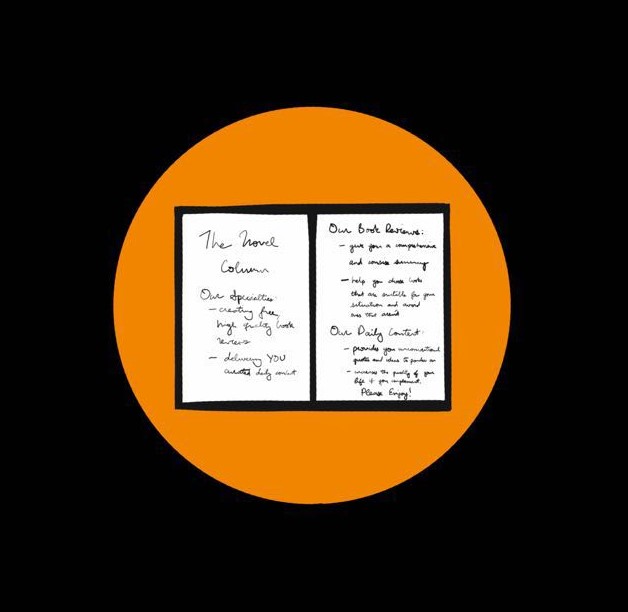 The Novel
Column
Our Specialties:
- creating free,
high quality book
reviews
- delivering YOU
curated daily content
Our Book Reviews:
- give you a comprehensive
and concise summary
- help you choose books
that are suitable for your
situation and avoid
ones that aren't
Our Daily Content:
- provides you unconventional
quotes and ideas to ponder on
- increases the quality of your
life +
Please Enjoy!